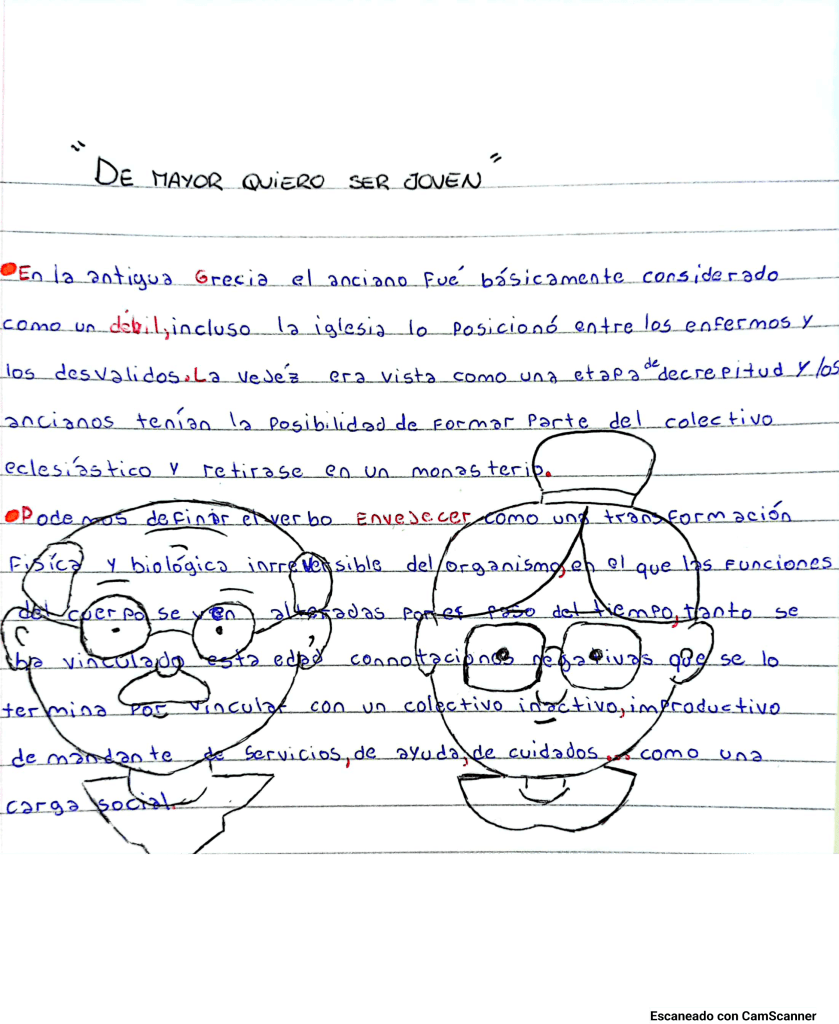 "DE MAYOR QUIERO SER JOVEN"
En la antigua Grecia el anciano fué básicamente considerado
como un débil, incluso la iglesia lo posicionó entre los enfermos y
los desvalidos. La vejéz era vista como una etapa de decrepitud y los
ancianos tenían la posibilidad de formar parte del colectivo
eclesiástico y retirase en un monasterio.
Podemos definir el verbo ENVEJECER como una transformación
física y biológica inrreversible del organismo, en el que las funciones
del cuerpo se ven alteradas por el paso del tiempo, tanto se
ha vinculado esta edad connotaciones negativas que se lo
termina por vincular con un colectivo inactivo, improductivo
demandante de servicios, de ayuda, de cuidados... como una
carga social.
Escaneado con CamScanner